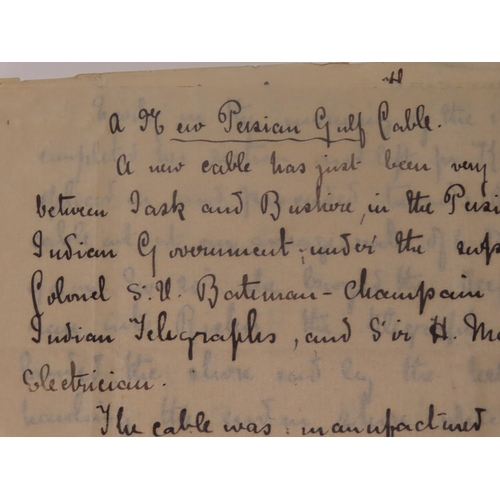 A New Persian Gulf Cable.
A new cable has just been very
between Jask and Bushire, in the Persi
Indian Government; under the sup
Colonel S. U. Bateman-Champain
Indian Telegraphs, and Sir H. Ma
Electrician.
The cable was manufactured